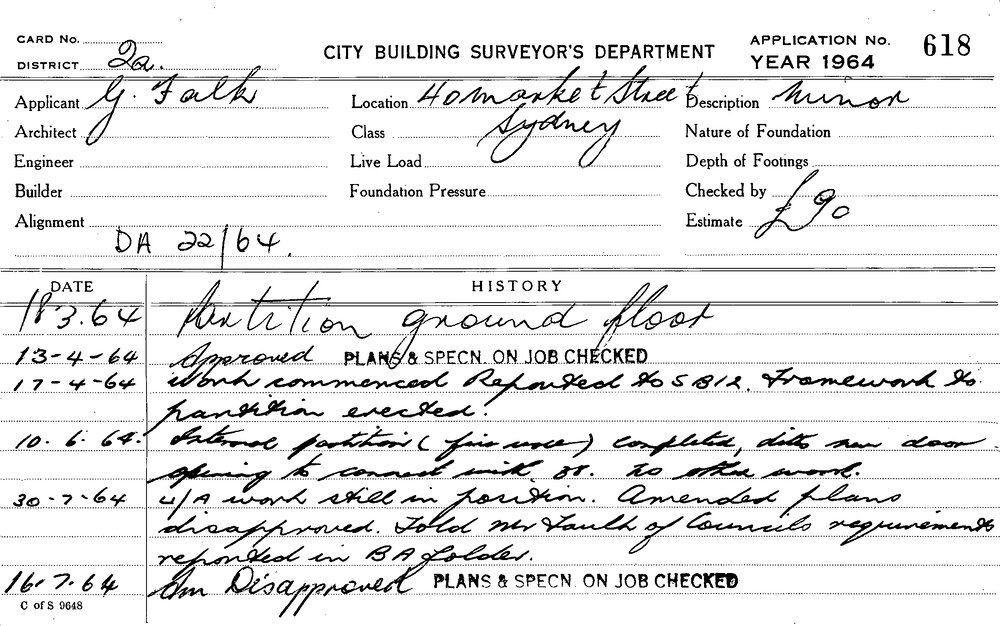 CARD No.
DISTRICT 2a.
CITY BUILDING SURVEYOR'S DEPARTMENT
APPLICATION No. 618
YEAR 1964
Applicant G. Falk
Location 40 market Street
Sydney
Description Minor
Architect
Class
Nature of Foundation
Engineer
Live Load
Depth of Footings
Builder
Foundation Pressure
Checked by
Alignment
Estimate £90
DA 22/64.
DATE
HISTORY
18 3.64 Partition ground floor
13-4-64 Approved PLANS & SPECN. ON JOB CHECKED
17-4-64 Work commenced Reported to SB12. Framework to
partition erected.
10. 6. 64. Internal partition ( ) completed, ditto new door
opening to connect with no other work.
30-7-64 U/A work still in position. Amended plans
disapproved. Told Mr Faulk of Councils requirements
reported in BA folder.
16.7.64 Am Disapproved PLANS & SPECN. ON JOB CHECKED
C of S 9648